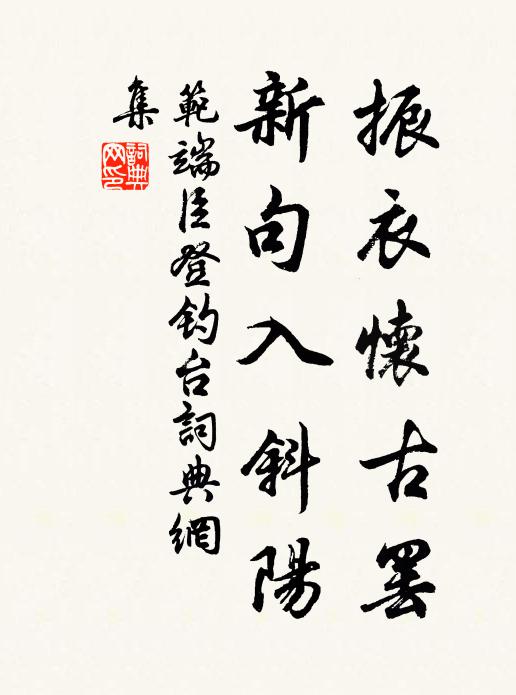 振衣懷古罢
新句入斜陽
範端臣登釣台詞典網
集
詞典
网印